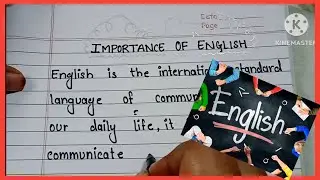 Date
Page
KINEMASTER
IMPORTANCE OF ENGLISH
English is the internatio standard
language of commu
our daily life, it
communicate
English